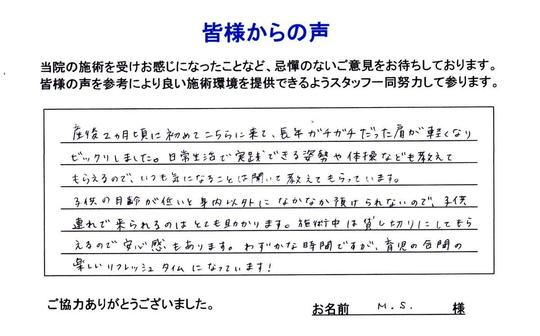 皆様からの声
当院の施術を受けお感じになったことなど、忌憚のないご意見をお待ちしております。
皆様の声を参考により良い施術環境を提供できるようスタッフ一同努力して参ります。
産後2ヵ月頃に初めてこちらに来て、長年ガチガチだった肩が軽くなり
ビックリしました。日常生活で実践できる姿勢や体操なども教えて
もらえるので、いつも気になることは聞いて教えてもらっています。
子供の月齢が低いと身内以外になかなか預けられないので、子供
連れで来られるのはとても助かります。施術中は貸し切りにしてもら
えるので安心感もあります。わずかな時間ですが、育児の合間の
楽しいリフレッシュタイムになっています!
ご協力ありがとうございました。
お名前 M.S. 様